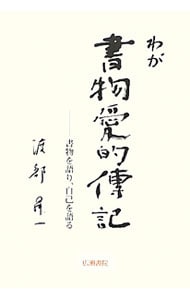 わが
書物愛的傳記
──書物を語り、自己を語る
渡部昇一
広瀬書院